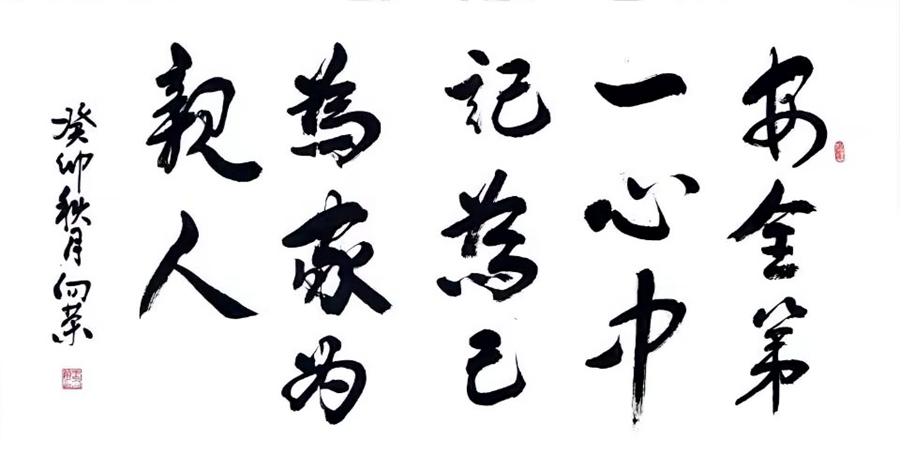 安全第
一心中
記為己
為家为
親人
癸卯秋月向荣